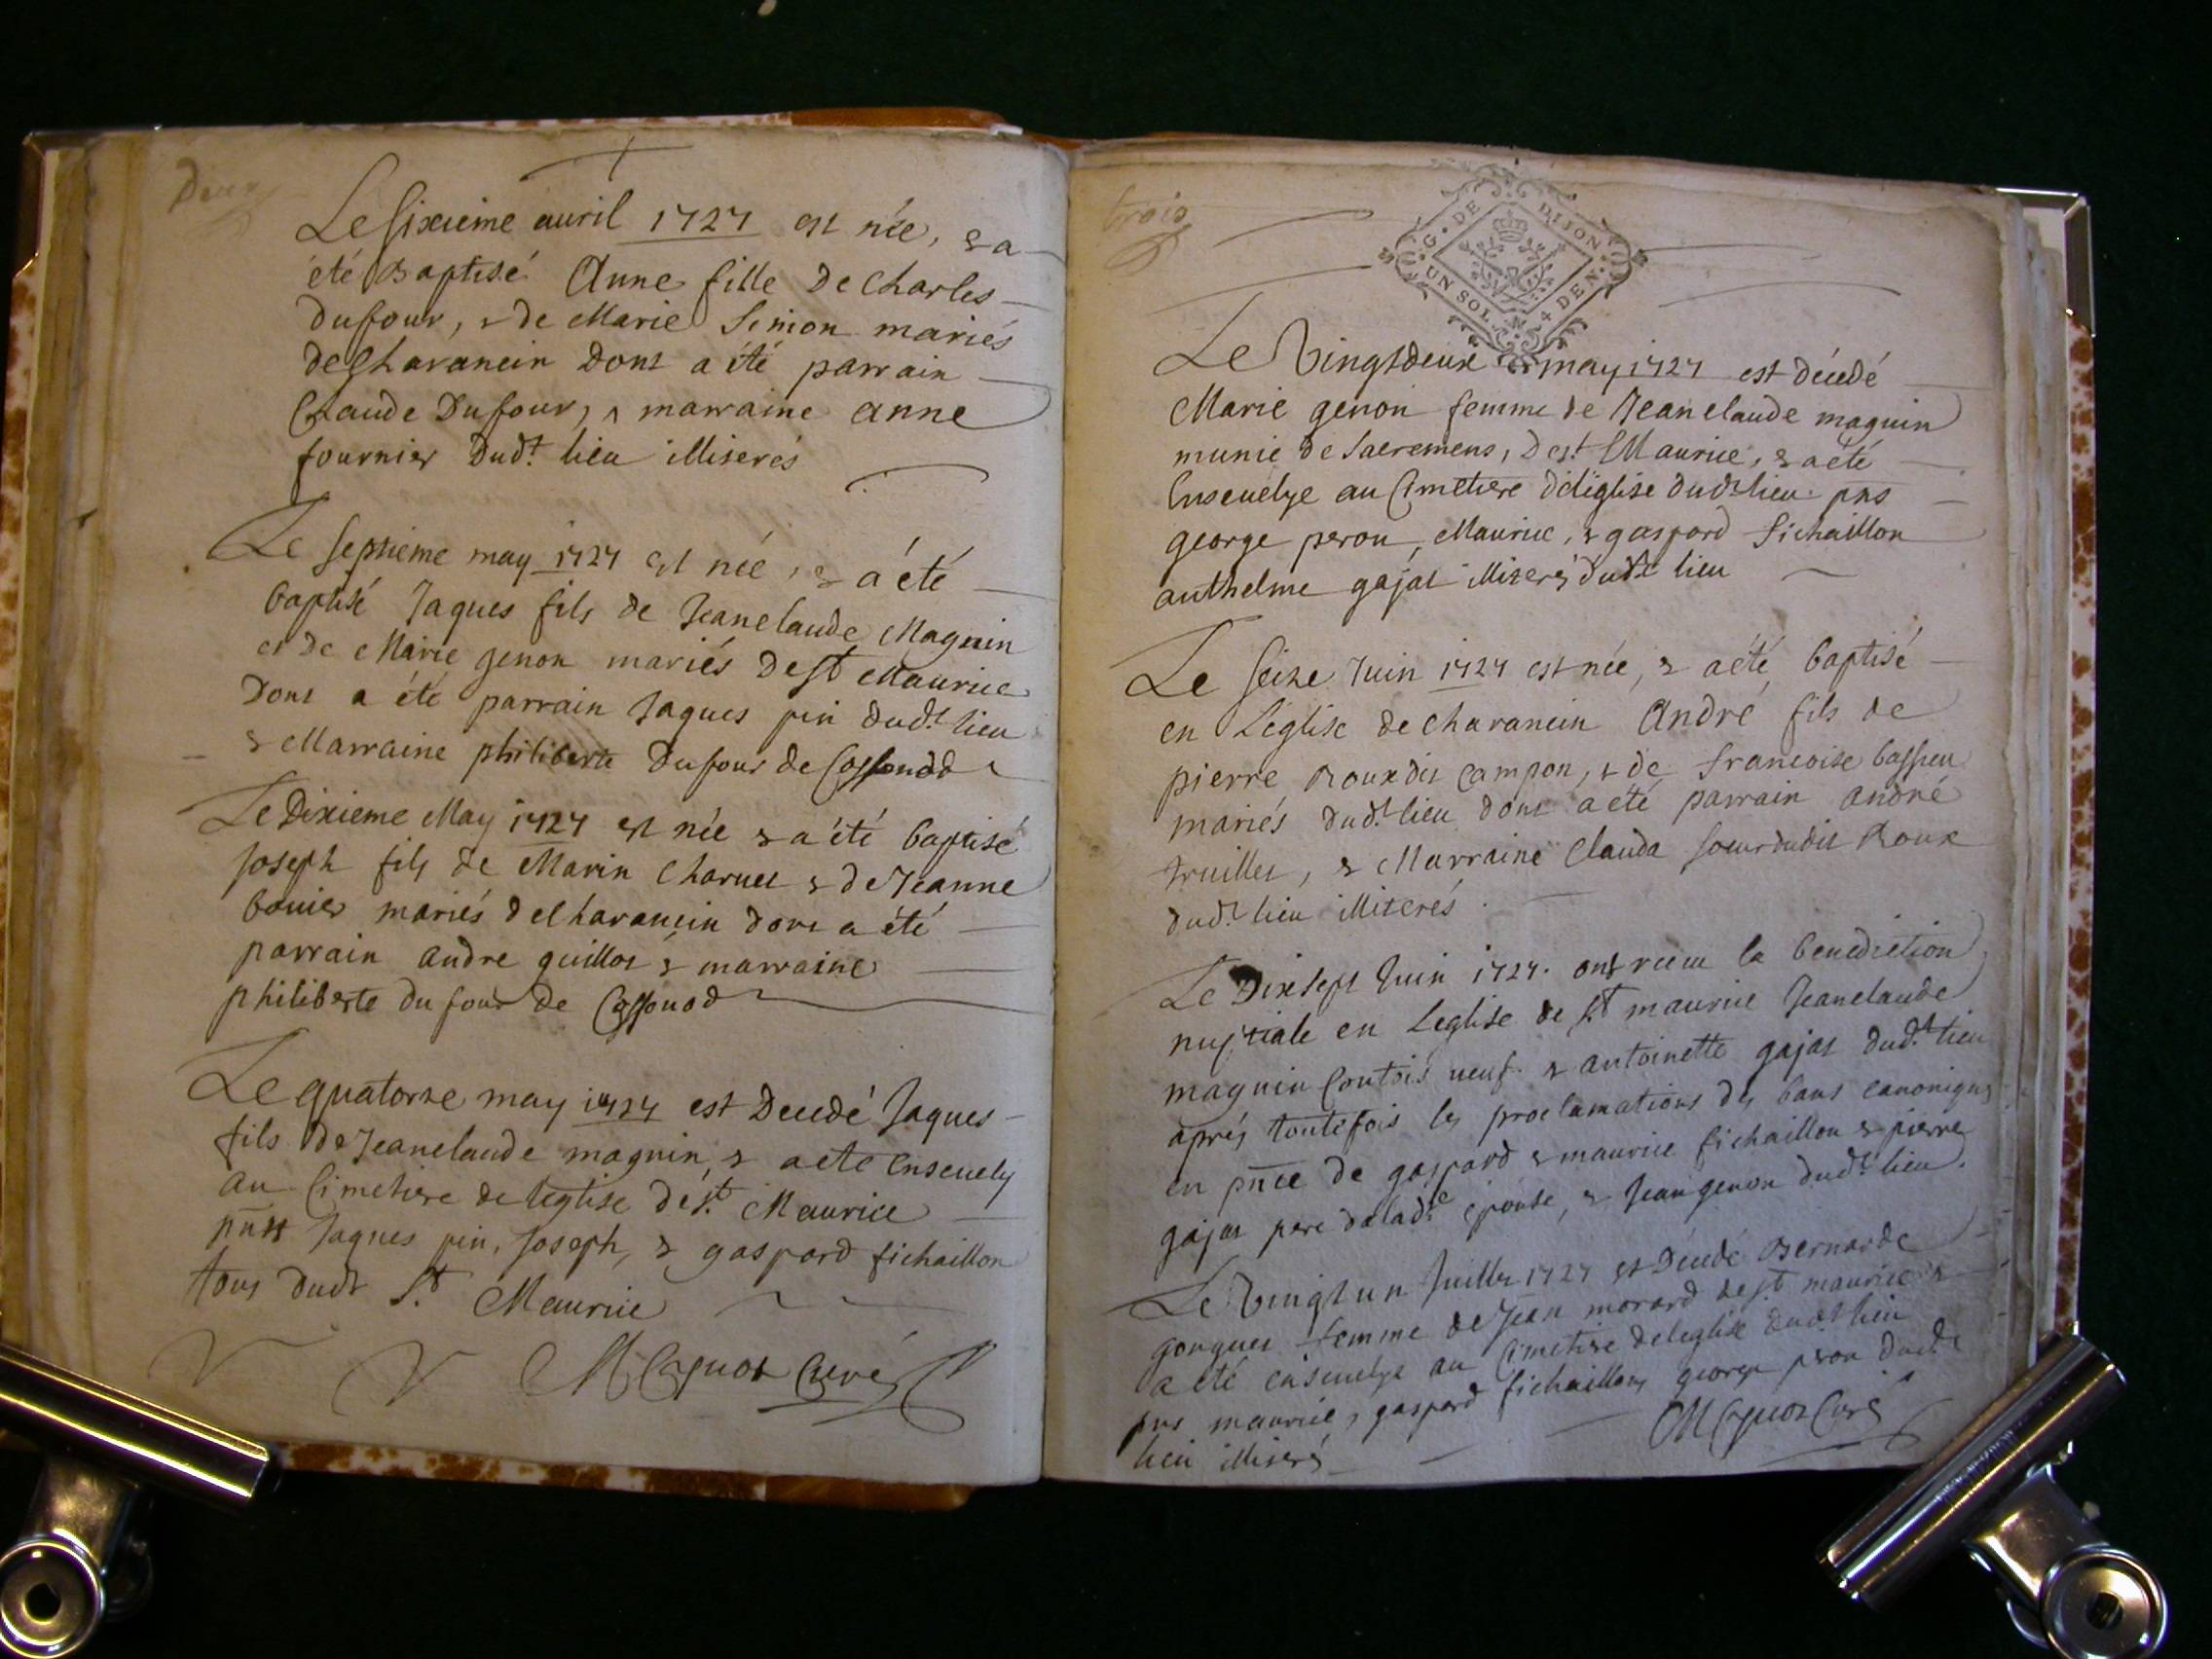 Deux
Le Sixieme auril 1727 est née, & a
été Baptisé Anne fille De Charles
Dufour, & de Marie Simon mariés
de Charancin Dont a été parrain
Claude Dufour, & marraine anne
fournier Dudt. lieu illiterés
Le septieme may 1727 est née, & a été
baptisé Jaques fils de Jeanclaude Magnin
et De Marie genon mariés De st Maurice
Dont a été parrain Jaques pin dudt. lieu
& Marraine philiberte Dufour de
Le Dixieme May 1727 est née & a été baptisé
Joseph fils de Marin Charuet & de Jeanne
bouier mariés de Charancin dont a été
parrain andre guillot & marraine
philiberte du four de
Le quatorze may 1727 est Decedé Jaques
fils de Jeanclaude magnin, & a eté Enseuely
au Cimetiere de leglise de st. Maurice
pnts Jaques pin, Joseph, & gaspard fichaillon
tous dudt St. Maurice
Curé
trois
G. DE DIJON
UN SOL 4 DEN.
Le Vingtdeux may 1727 est décedé
Marie genon femme de Jeanclaude magnin
munie de Sacremens, De st Maurice, & a été
Enseuelye au Cimetiere de léglise dudt lieu pns
george peron, Maurice, & gaspard fichaillon
anthelme gajat illiterés dudt lieu
Le seize Juin 1727 est née, & a été baptisé
en L'église de charancin André fils de
pierre Roux dit Campon, & de francoise bassieu
mariés dudt. lieu dont a été parrain andré
truillet, & Marraine Clauda soeur dudit Roux
dudt. lieu illiterés.
Le Dixsept Juin 1727. ont recu la benediction
nuptiale en Leglise de St maurice Jeanclaude
magnin Contois veuf. & antoinette gajat dudt. lieu
aprés toutefois les proclamations des bans canoniques
en pnce de gaspard & maurice fichaillon & pierre
gajat pere de ladte épouse, & Jean genon dudt. lieu.
Le Vingt un Juillet 1727 est Décedé Bernarde
femme de Jean morard de st maurice &
a eté enseuelye au Cimetiere de leglise dudt lieu
pns maurice, gaspard fichaillon, george peron dudt.
lieu illiterés
Curé